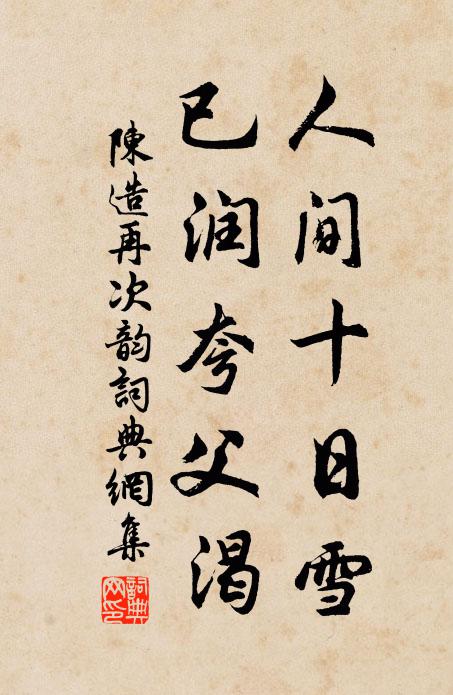 人间十日雪
已润夸父渴
陳造再次韵詞典網集
詞典网印